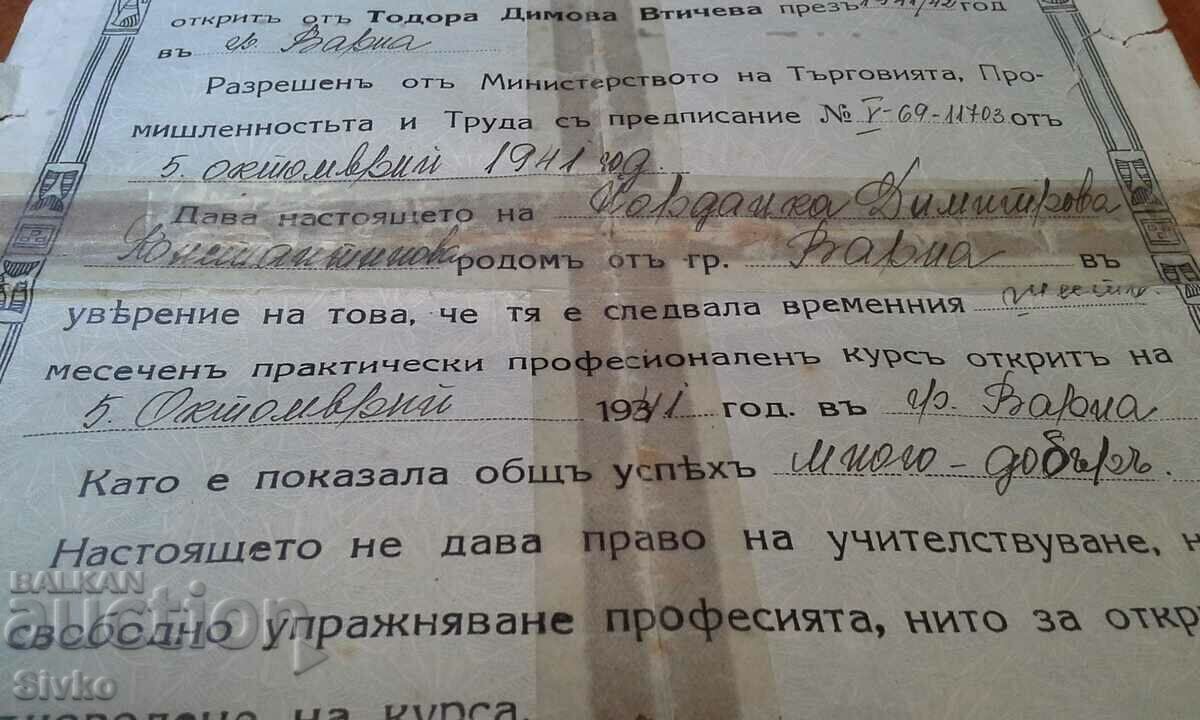 открить отъ Тодора Димова Втичева презъ 1941/42 год
въ гр. Варна
Разрешенъ отъ Министерството на Търговията, Про-
мишленностьта и Труда съ предписание № V-69-11703 отъ
5. октомврий 1941 год.
Дава настоящето на Йорданка Димитрова
Константинова родомъ отъ гр. Варна въ
увѣрение на това, че тя е следвала временния
месеченъ практически професионаленъ курсъ открить на
5. Октомврий 1941 год. въ гр. Варна
Като е показала общъ успѣхъ много-добъръ.
Настоящето не дава право на учителствуване,
свободно упражняване професията, нито за откр
на курса.
BALKAN
auction
Sivko